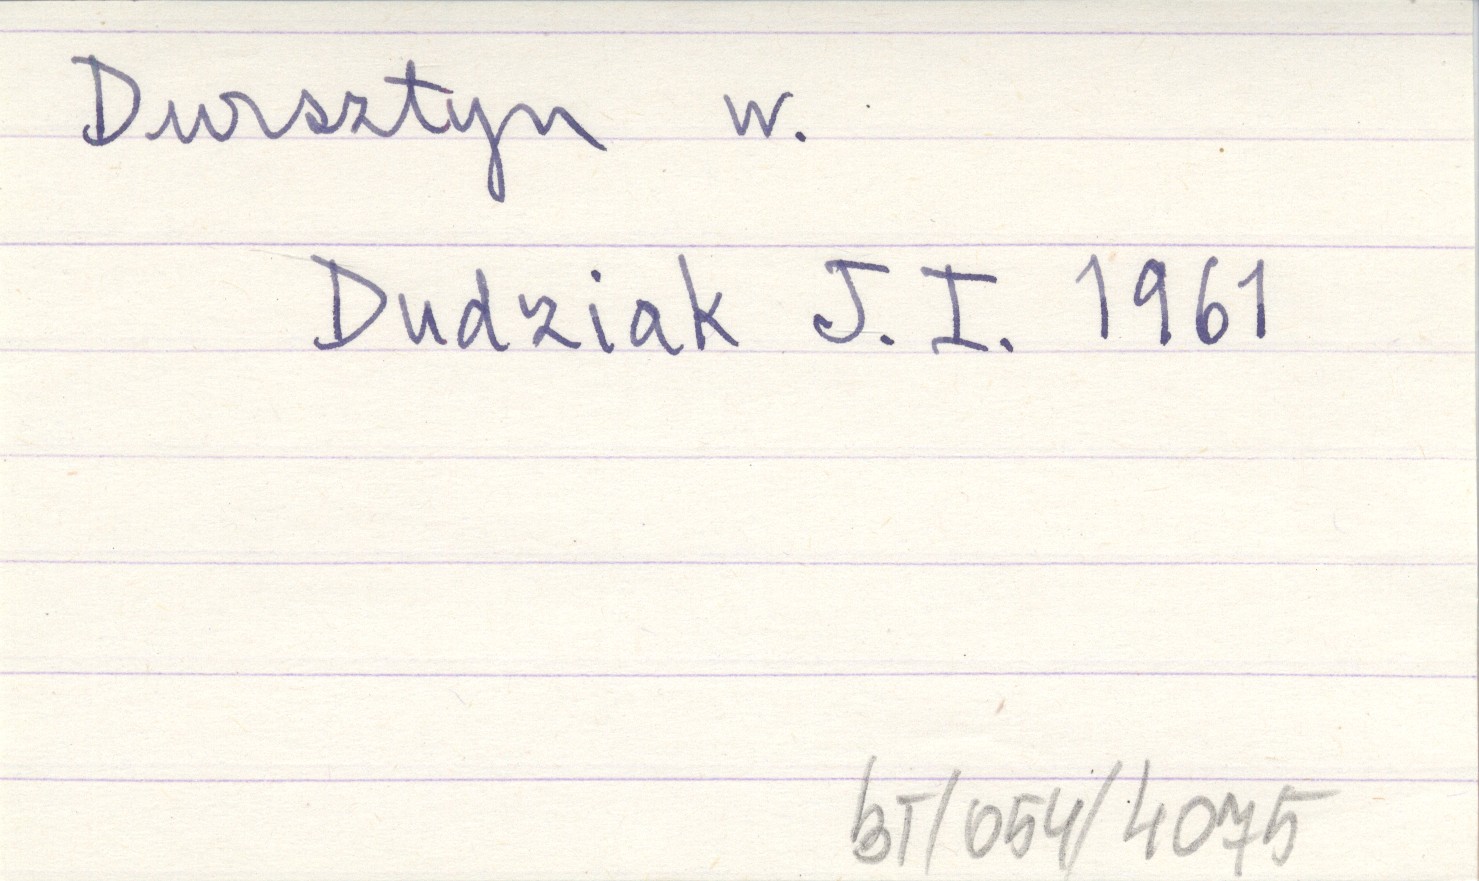 Dursztyn w.
Dudziak J.I. 1961
BT/054/4075